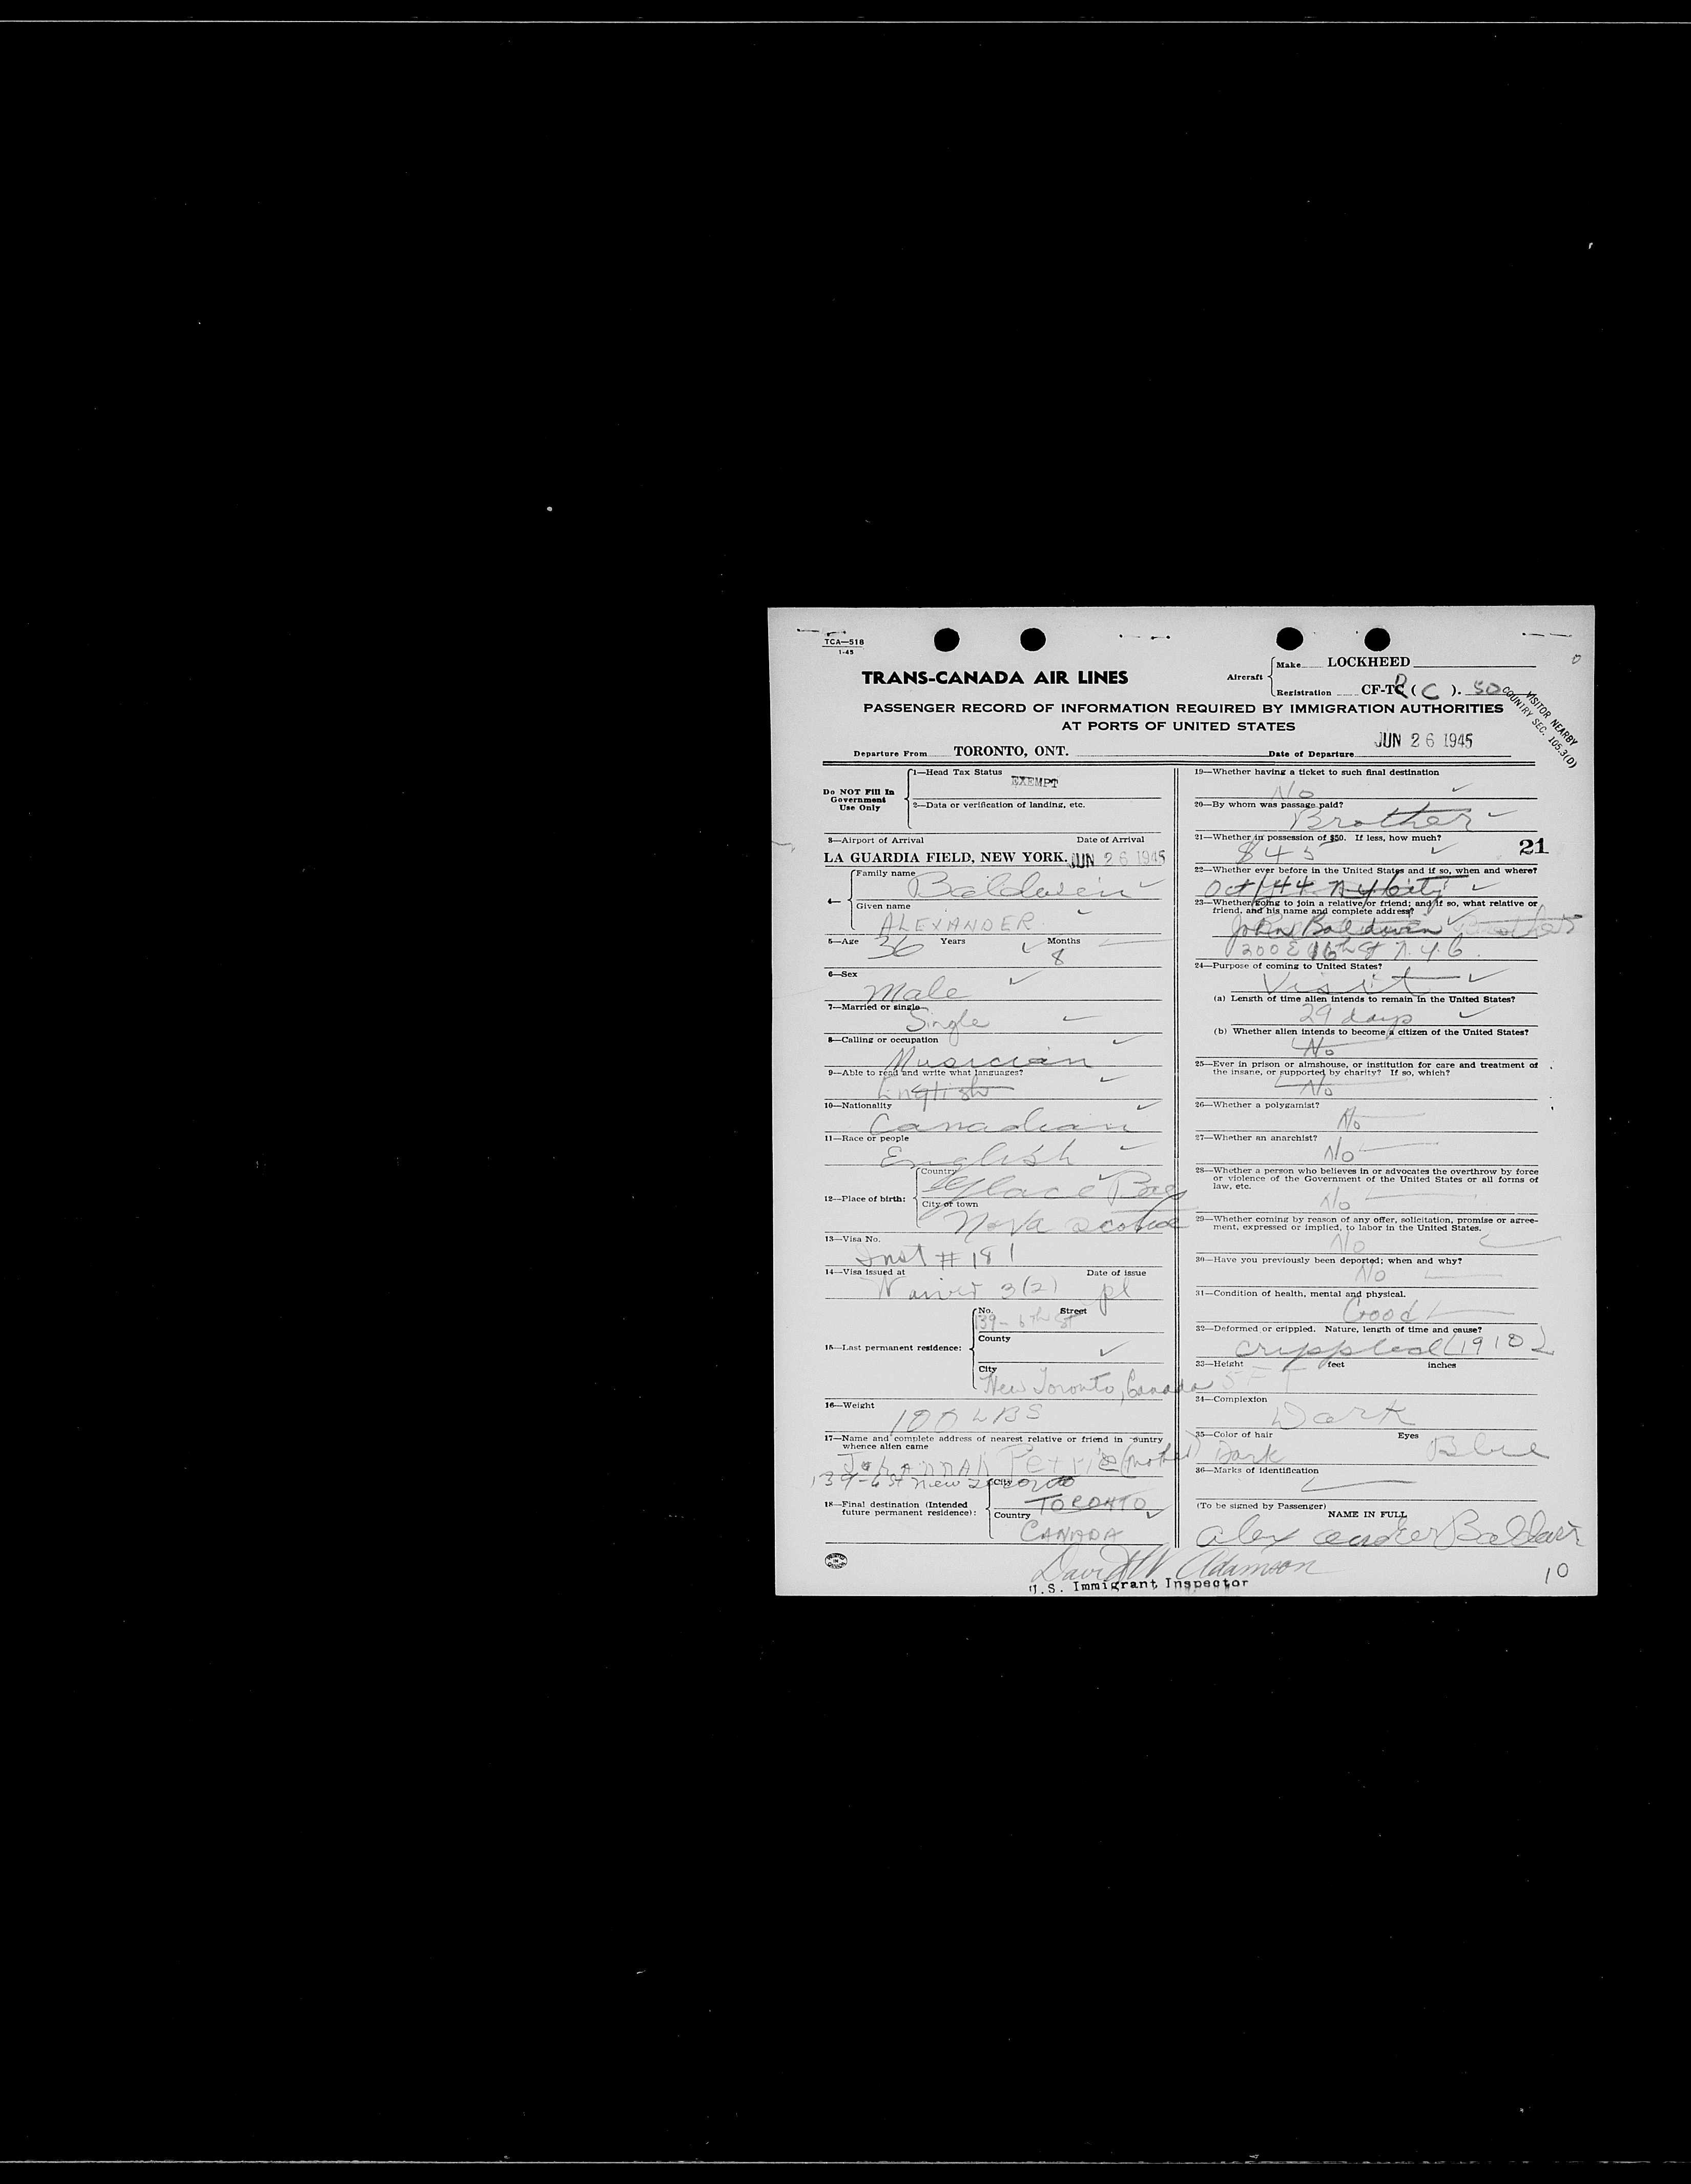 TCA—518
1-45
TRANS-CANADA AIR LINES
Aircraft
Make LOCKHEED
Registration CF-TC (C). 50
VISITOR NEARBY
COUNTRY SEC. 105.3(D)
PASSENGER RECORD OF INFORMATION REQUIRED BY IMMIGRATION AUTHORITIES
AT PORTS OF UNITED STATES
Departure From TORONTO, ONT.
Date of Departure JUN 26 1945
Do NOT Fill In
Government
Use Only
1—Head Tax Status
EXEMPT
2—Data or verification of landing, etc.
3—Airport of Arrival Date of Arrival
LA GUARDIA FIELD, NEW YORK. JUN 26 1945
4—
Family name
Baldwin
Given name
ALEXANDER
5—Age 36 Years Months
8
6—Sex
Male
7—Married or single
Single
8—Calling or occupation
Musician
9—Able to read and write what languages?
English
10—Nationality
Canadian
11—Race or people
English
12—Place of birth:
Country
Glace Bay
City or town
Nova Scotia
13—Visa No.
Inst # 181
14—Visa issued at Date of issue
Waiver 3(2) pl
15—Last permanent residence:
No. Street
139 - 6th St
County
City
New Toronto, Canada
16—Weight
100 LBS
17—Name and complete address of nearest relative or friend in country
whence alien came
Johannah Petrie (mother)
139-6 St New Toronto
18—Final destination (Intended
future permanent residence):
City
TORONTO
Country
CANADA
19—Whether having a ticket to such final destination
No
20—By whom was passage paid?
Brother
21—Whether in possession of $50. If less, how much?
$45
21
22—Whether ever before in the United States and if so, when and where?
Oct/44 N.Y. City
23—Whether going to join a relative or friend; and if so, what relative or
friend, and his name and complete address?
John Baldwin Brother
200 E 16th St N.Y.C.
24—Purpose of coming to United States?
Visit
(a) Length of time alien intends to remain in the United States?
29 days
(b) Whether alien intends to become a citizen of the United States?
No
25—Ever in prison or almshouse, or institution for care and treatment of
the insane, or supported by charity? If so, which?
No
26—Whether a polygamist?
No
27—Whether an anarchist?
No
28—Whether a person who believes in or advocates the overthrow by force
or violence of the Government of the United States or all forms of
law, etc.
No
29—Whether coming by reason of any offer, solicitation, promise or agree-
ment, expressed or implied, to labor in the United States.
No
30—Have you previously been deported; when and why?
No
31—Condition of health, mental and physical.
Good
32—Deformed or crippled. Nature, length of time and cause?
Crippled (1910)
33—Height feet inches
5 FT
34—Complexion
Dark
35—Color of hair Eyes
Dark Blue
36—Marks of identification
(To be signed by Passenger)
NAME IN FULL
Alexander Baldwin
David W Adamson
U.S. Immigrant Inspector
10